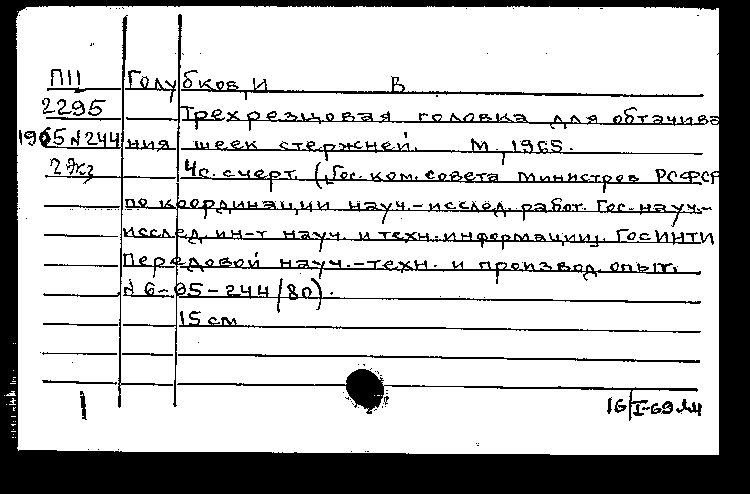 ПII Голубков, И В
2295 Трехрезцовая головка для обтачива
1965 N 244 ния шеек стержней. М, 1965.
2 экз 4с. с черт. (Гос. ком. совета министров РСФСР
по координации науч.-исслед. работ. Гос. науч.-
исслед. ин-т науч. и техн. информации. ГОСИНТИ
Передовой науч.-техн. и производ. опыт.
N 6-65-244/80).
15 см
16/I-69